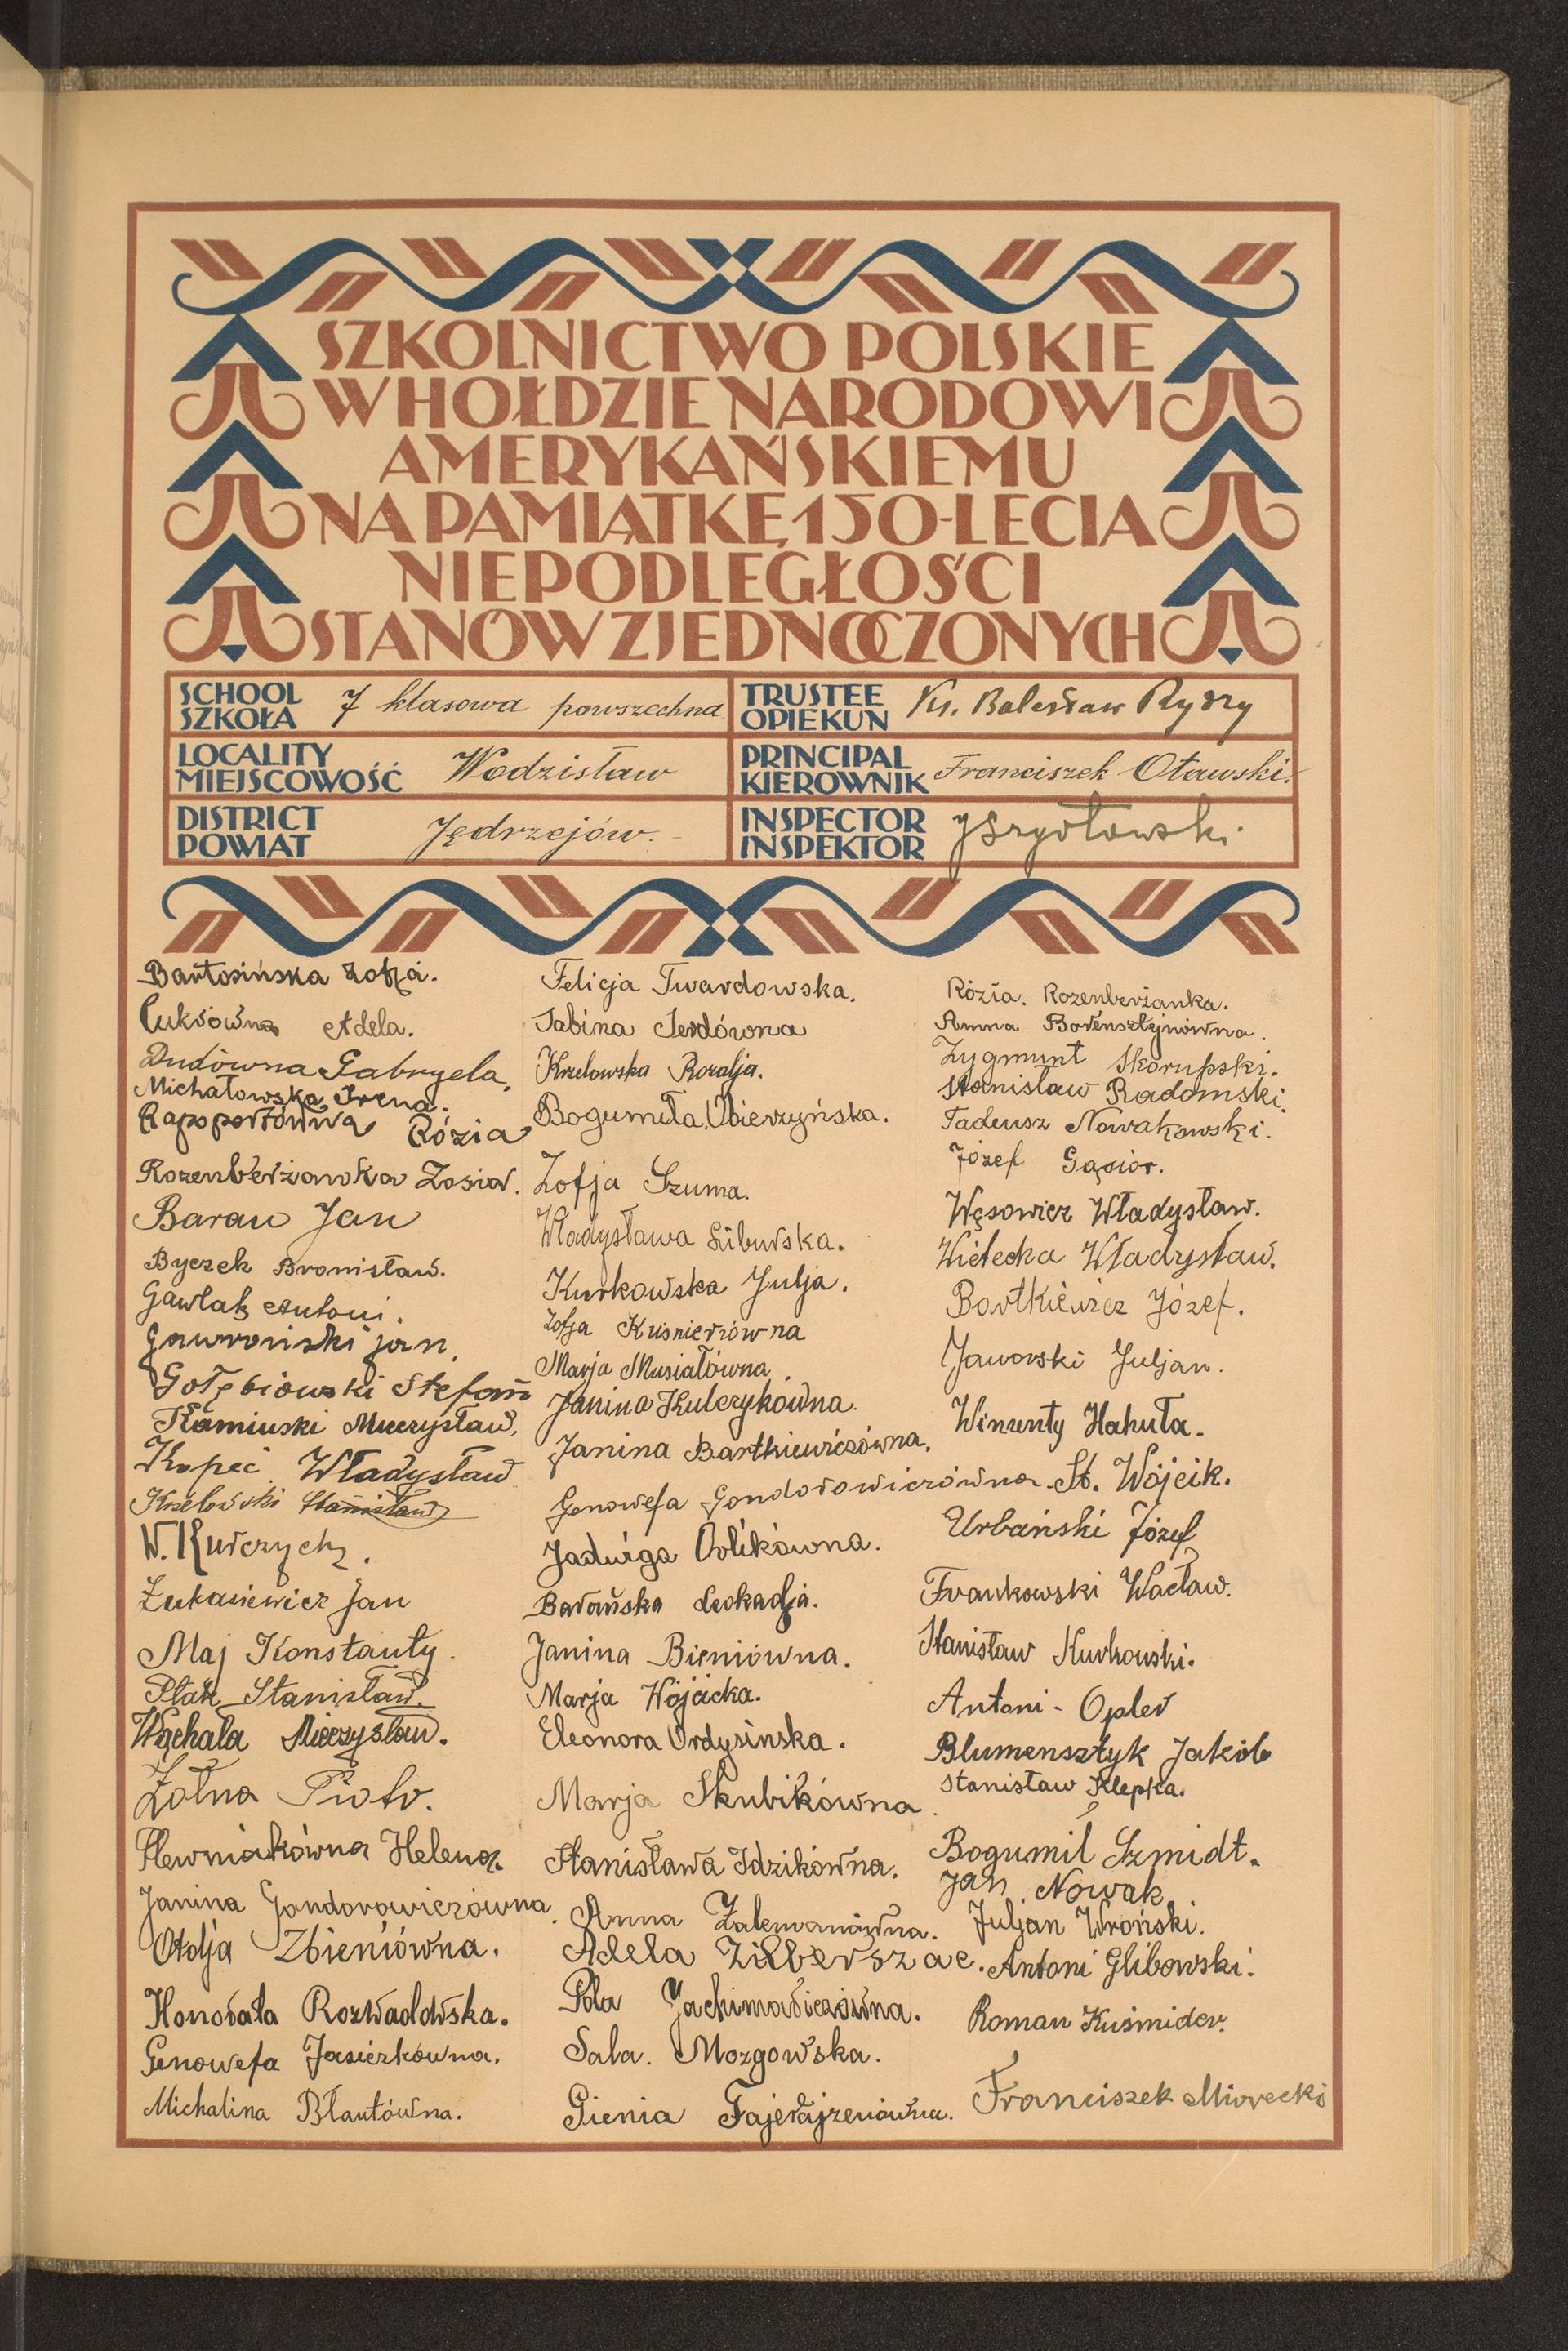 SZKOLNICTWO POLSKIE
W HOŁDZIE NARODOWI
AMERYKAŃSKIEMU
NA PAMIĄTKĘ 150-LECIA
NIEPODLEGŁOŚCI
STANÓW ZJEDNOCZONYCH
SCHOOL
SZKOŁA 7 klasowa powszechna
TRUSTEE
OPIEKUN Ks. Bolesław Ryszy
LOCALITY
MIEJSCOWOŚĆ Wodzisław
PRINCIPAL
KIEROWNIK Franciszek Oławski.
DISTRICT
POWIAT Jędrzejów.
INSPECTOR
INSPEKTOR
Bartosińska Zofja.
Cukrówna Adela.
Dudówna Gabryela.
Michałowska Irena.
Rapoportówna Rózia
Rozenberżanka Zosia.
Baran Jan
Byczek Bronisław.
Gawlak Antoni.
Gawroński Jan.
Gołębiowski Stefan
Kamiński Mieczysław.
Kopeć Władysław
Krzelowski Stanisław
W. Kurczych.
Łukasiewicz Jan
Maj Konstanty.
Ptak Stanisław.
Wąchała Mieczysław.
Żołna Piotr.
Plewniakówna Helena.
Janina Gondorowiczówna.
Otolja Zbieniówna.
Honorata Rozwadowska.
Genowefa Jasiczkówna.
Michalina Błautówna.
Felicja Twardowska.
Sabina Jerdówna
Krzelowska Rozalja.
Bogumiła Obierzyńska.
Zofja Szuma.
Władysława Libuska.
Kurkowska Julja.
Zofja Kuśnierzówna
Marja Musiałówna.
Janina Kulczykówna.
Janina Bartkiewiczówna.
Genowefa Gondorowiczówna.
Jadwiga Orlikówna.
Barańska Leokadja.
Janina Bieniówna.
Marja Wójcicka.
Eleonora Ordysińska.
Marja Skubikówna.
Stanisława Idzikówna.
Anna Zalcmanówna.
Adela Zilberszac.
Pola Jachimowiczówna.
Sala. Mozgowska.
Gienia Fajerajzenówna.
Rózia. Rozenberżanka.
Anna Borensztajnówna.
Zygmunt Skorupski.
Stanisław Radomski.
Tadeusz Nowakowski.
Józef Gąsior.
Węsowicz Władysław.
Wielecka Władysław.
Bartkiewicz Józef.
Jaworski Juljan.
Winzenty Hahuła.
St. Wójcik.
Urbański Józef
Frankowski Wacław.
Stanisław Kurkowski.
Antoni - Opler
Blumensztyk Jakób
Stanisław Klepka.
Bogumił Szmidt.
Jan Nowak.
Juljan Wroński.
Antoni Glibowski.
Roman Kuśmider.
Franciszek Miorecki